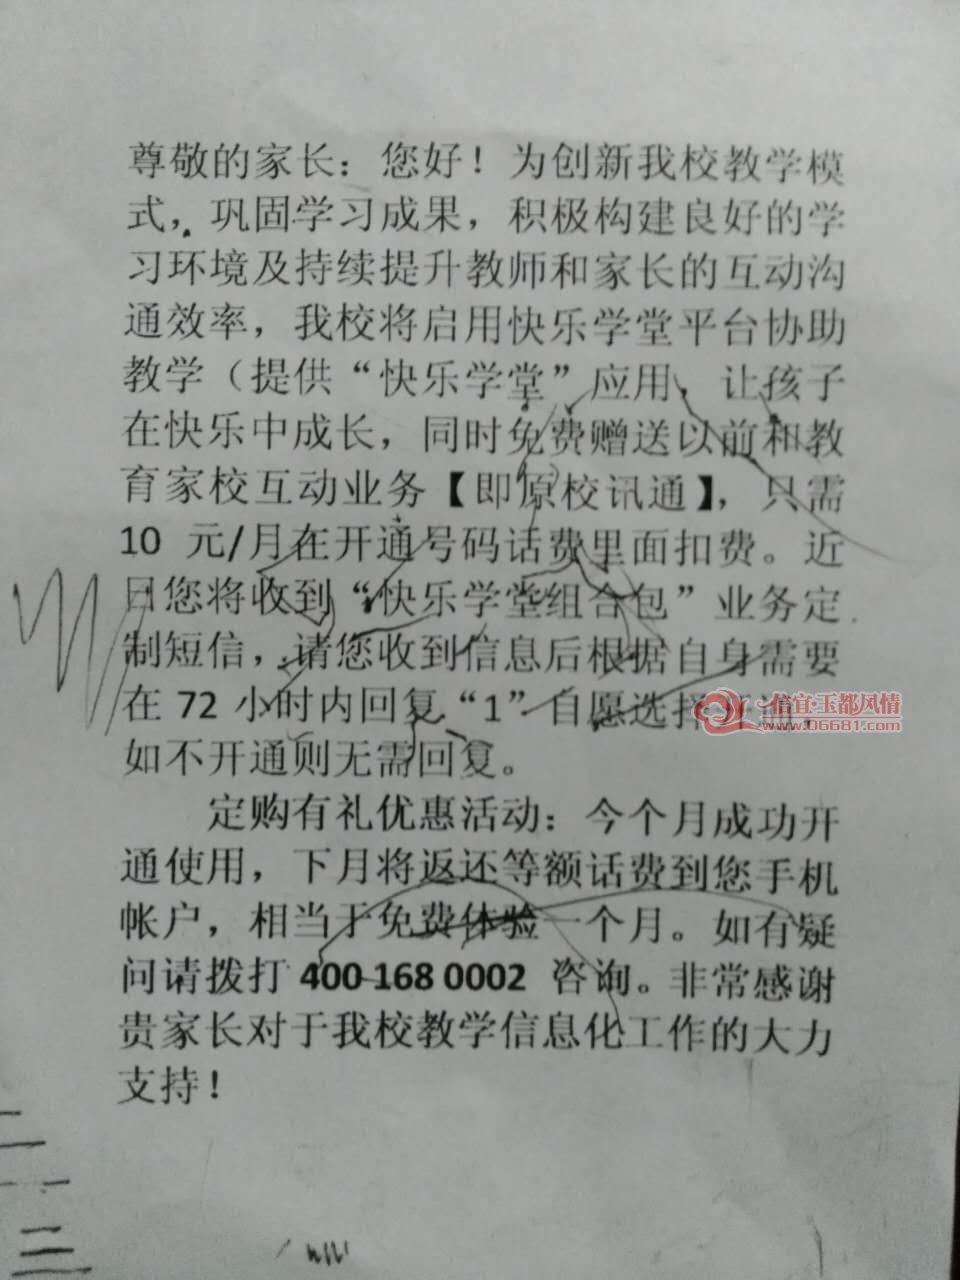 尊敬的家长：您好！为创新我校教学模
式，巩固学习成果，积极构建良好的学
习环境及持续提升教师和家长的互动沟
通效率，我校将启用快乐学堂平台协助
教学（提供“快乐学堂”应用，让孩子
在快乐中成长，同时免费赠送以前和教
育家校互动业务【即原校讯通】，只需
10 元/月在开通号码话费里面扣费。近
日您将收到“快乐学堂组合包”业务定
制短信，请您收到信息后根据自身需要
在 72 小时内回复“1”自愿选择开通，
如不开通则无需回复。
定购有礼优惠活动：今个月成功开
通使用，下月将返还等额话费到您手机
帐户，相当于免费体验一个月。如有疑
问请拨打 400-168 0002 咨询。非常感谢
贵家长对于我校教学信息化工作的大力
支持！
信宜·玉都风情
www.06681.com